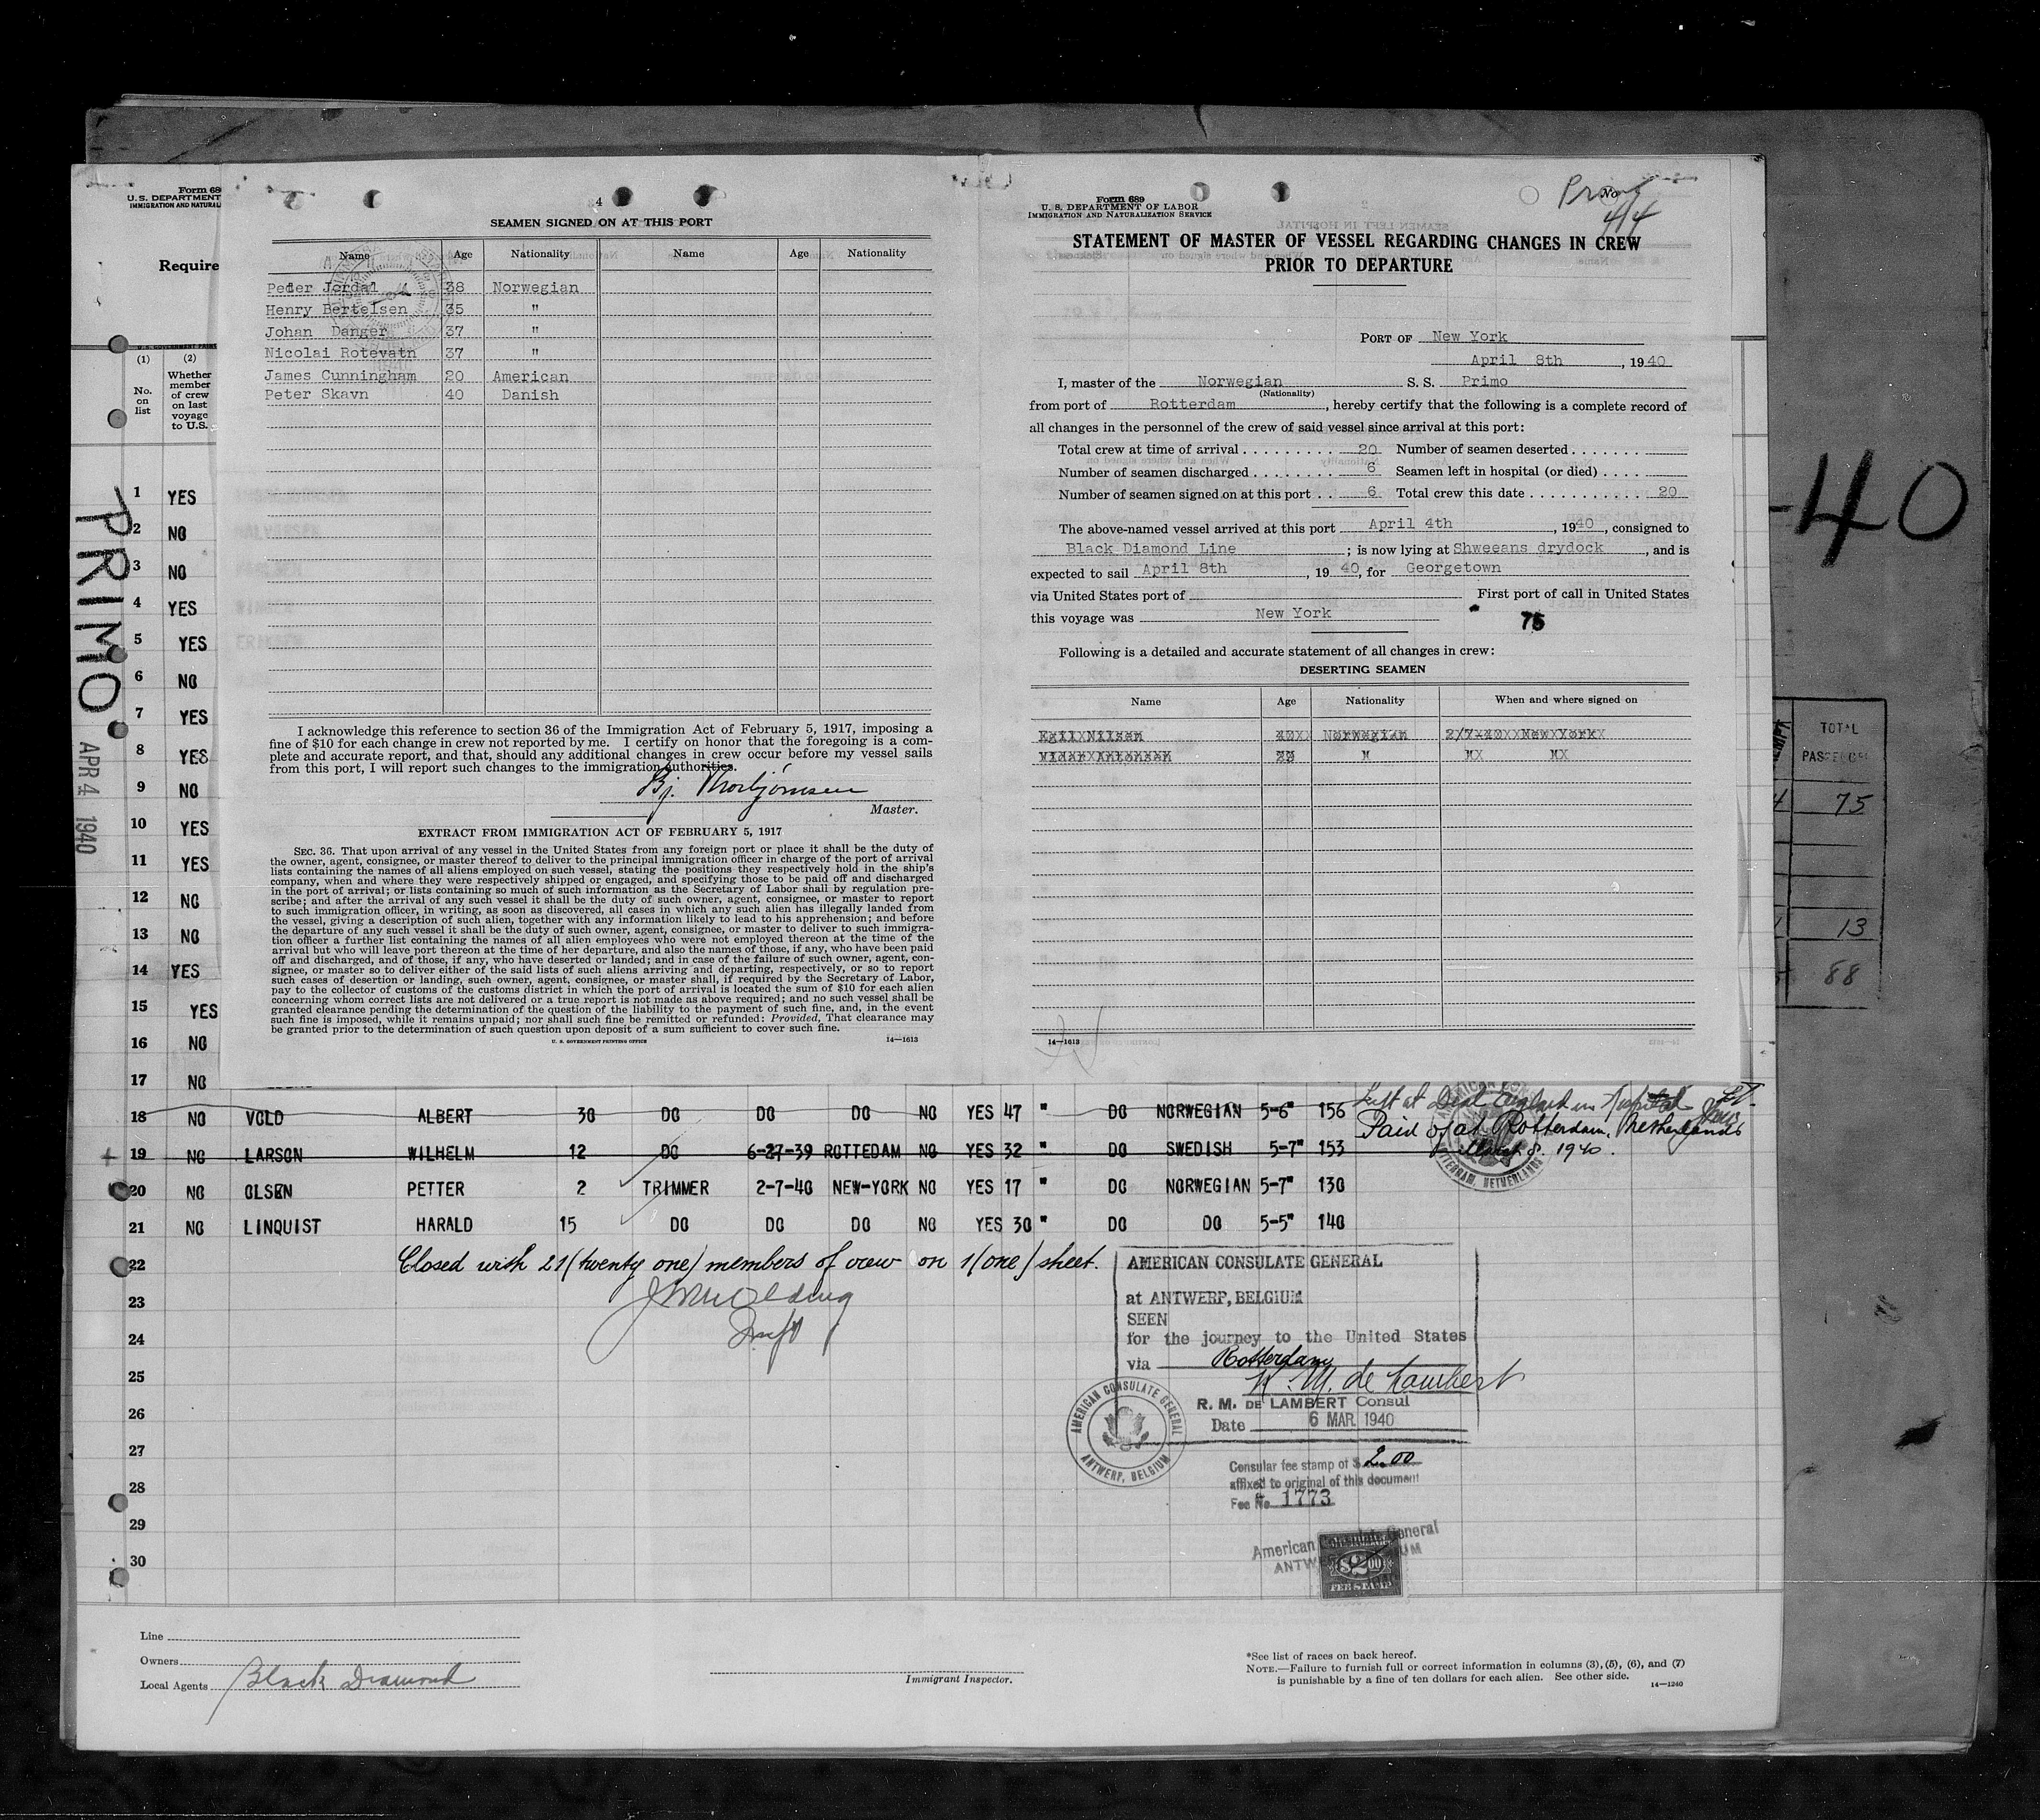 Form 68
U. S. DEPARTMENT
IMMIGRATION AND NATURAL
Require
(1)
(2)
No. on list
Whether member of crew on last voyage to U.S.
1 YES
2 NO
3 NO
4 YES
5 YES
6 NO
7 YES
8 YES
9 NO
10 YES
11 YES
12 NO
13 NO
14 YES
15 YES
16 NO
17 NO
PRIMO
APR 4 1940
4
SEAMEN SIGNED ON AT THIS PORT
Name Age Nationality Name Age Nationality
Peder Jordal 38 Norwegian
Henry Bertelsen 35 "
Johan Danger 37 "
Nicolai Rotevatn 37 "
James Cunningham 20 American
Peter Skavn 40 Danish
I acknowledge this reference to section 36 of the Immigration Act of February 5, 1917, imposing a
fine of $10 for each change in crew not reported by me. I certify on honor that the foregoing is a com-
plete and accurate report, and that, should any additional changes in crew occur before my vessel sails
from this port, I will report such changes to the immigration authorities.
Bj. Thorbjörnsen
Master.
EXTRACT FROM IMMIGRATION ACT OF FEBRUARY 5, 1917
SEC. 36. That upon arrival of any vessel in the United States from any foreign port or place it shall be the duty of
the owner, agent, consignee, or master thereof to deliver to the principal immigration officer in charge of the port of arrival
lists containing the names of all aliens employed on such vessel, stating the positions they respectively hold in the ship's
company, when and where they were respectively shipped or engaged, and specifying those to be paid off and discharged
in the port of arrival; or lists containing so much of such information as the Secretary of Labor shall by regulation pre-
scribe; and after the arrival of any such vessel it shall be the duty of such owner, agent, consignee, or master to report
to such immigration officer, in writing, as soon as discovered, all cases in which any such alien has illegally landed from
the vessel, giving a description of such alien, together with any information likely to lead to his apprehension; and before
the departure of any such vessel it shall be the duty of such owner, agent, consignee, or master to deliver to such immigra-
tion officer a further list containing the names of all alien employees who were not employed thereon at the time of the
arrival but who will leave port thereon at the time of her departure, and also the names of those, if any, who have been paid
off and discharged, and of those, if any, who have deserted or landed; and in case of the failure of such owner, agent, con-
signee, or master so to deliver either of the said lists of such aliens arriving and departing, respectively, or so to report
such cases of desertion or landing, such owner, agent, consignee, or master shall, if required by the Secretary of Labor,
pay to the collector of customs of the customs district in which the port of arrival is located the sum of $10 for each alien
concerning whom correct lists are not delivered or a true report is not made as above required; and no such vessel shall be
granted clearance pending the determination of the question of the liability to the payment of such fine, and, in the event
such fine is imposed, while it remains unpaid; nor shall such fine be remitted or refunded: Provided, That clearance may
be granted prior to the determination of such question upon deposit of a sum sufficient to cover such fine.
U. S. GOVERNMENT PRINTING OFFICE 14—1613
Form 689
U. S. DEPARTMENT OF LABOR
IMMIGRATION AND NATURALIZATION SERVICE
No
Primo
4/4
STATEMENT OF MASTER OF VESSEL REGARDING CHANGES IN CREW
PRIOR TO DEPARTURE
PORT OF New York
April 8th, 1940
I, master of the Norwegian S. S. Primo
(Nationality)
from port of Rotterdam, hereby certify that the following is a complete record of
all changes in the personnel of the crew of said vessel since arrival at this port:
Total crew at time of arrival . . . . . . . . . . 20 Number of seamen deserted . . . . . . .
Number of seamen discharged . . . . . . . . 6 Seamen left in hospital (or died) . . . .
Number of seamen signed on at this port . . 6 Total crew this date . . . . . . . . . . . . 20
The above-named vessel arrived at this port April 4th, 1940, consigned to
Black Diamond Line; is now lying at Shweeans drydock, and is
expected to sail April 8th, 1940, for Georgetown
via United States port of First port of call in United States
this voyage was New York
75
Following is a detailed and accurate statement of all changes in crew:
DESERTING SEAMEN
Name Age Nationality When and where signed on
Egil Nilsen Norwegian 2/7-40 New York
14—1613
-40
TOTAL
75
13
88
18 NO VOLD ALBERT 30 DO DO DO NO YES 47 " DO NORWEGIAN 5-6" 156
19 NO LARSON WILHELM 12 DO 6-27-39 ROTTEDAM NO YES 32 " DO SWEDISH 5-7" 153
Paid of at Rotterdam, Netherlands
March 8. 1940.
20 NO OLSEN PETTER 2 TRIMMER 2-7-40 NEW-YORK NO YES 17 " DO NORWEGIAN 5-7" 130
21 NO LINQUIST HARALD 15 DO DO DO NO YES 30 " DO DO 5-5" 140
22 Closed with 21 (twenty one) members of crew on 1 (one) sheet.
23
24
25
26
27
28
29
30
AMERICAN CONSULATE GENERAL
at ANTWERP, BELGIUM
SEEN
for the journey to the United States
via Rotterdam
R. M. de Lambert
R. M. DE LAMBERT Consul
Date 6 MAR 1940
AMERICAN CONSULATE GENERAL
ANTWERP, BELGIUM
Consular fee stamp of $ 2.00
affixed to original of this document
Fee No. 1773
American Consulate General
$2.00
FEE STAMP
Line
Owners
Local Agents Black Diamond
Immigrant Inspector.
*See list of races on back hereof.
NOTE.—Failure to furnish full or correct information in columns (3), (5), (6), and (7)
is punishable by a fine of ten dollars for each alien. See other side.
14—1240